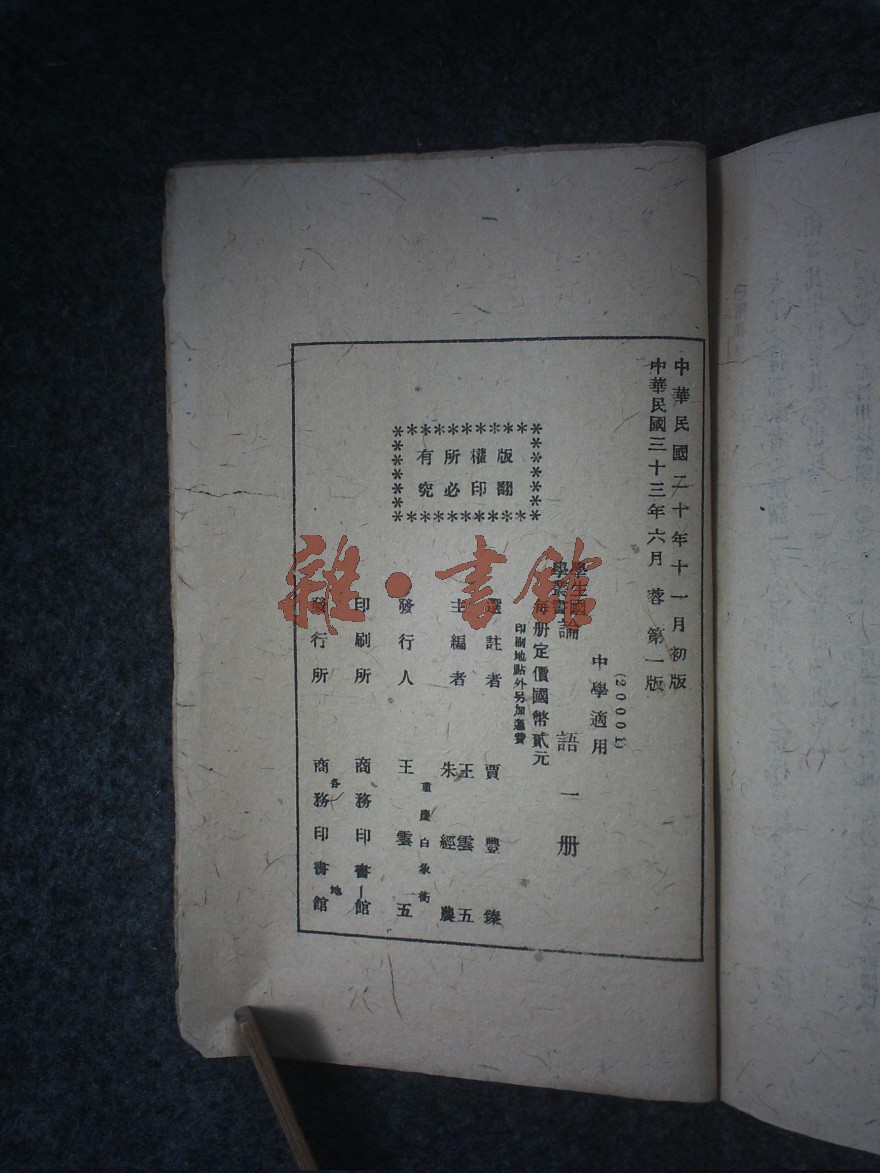 中華民國二十年十一月初版
中華民國三十三年六月蓉第一版
(20001)
中學適用
學生國學叢書
論語一册
每册定價國幣貳元
印刷地點外另加運費
版權所有
翻印必究
選註者 賈豐臻
主編者 王雲五 朱經農
發行人 王雲五
重慶白象街
印刷所 商務印書館
發行所 各地 商務印書館
雜·書館